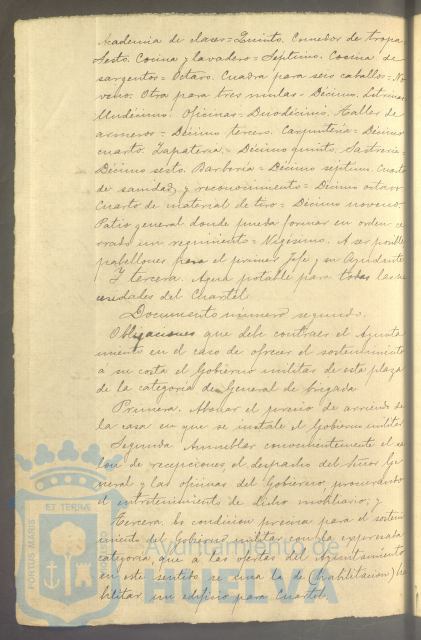 Academia de clases = Quinto. Comedor de tropa
Sesto. Cocina y lavadero = Septimo. Cocina de
sargentos = Octavo. Cuadra para seis caballos = No
veno. Otra para tres mulas = Décimo. Letrinas
Undécimo. Oficinas = Duodécimo. Taller de
armeros = Décimo tercero. Carpintería = Décimo
cuarto. Zapatería = Décimo quinto. Sastrería
Décimo sesto. Barbería = Décimo septimo. Cuarto
de sanidad y reconocimiento = Décimo octavo
Cuarto de material de tiro = Décimo noveno.
Patio general donde pueda formar en orden ce
rrado un regimiento = Vigésimo. A ser posible
pabellones para el primer Jefe y su Ayudante
Y tercera. Agua potable para todas las ne
cesidades del Cuartel
Documento número segundo.
Obligaciones que debe contraer el Ayunta
miento en el caso de ofrecer el sostenimiento
a su costa el Gobierno militar de esta plaza
de la categoría de General de brigada
Primera. Abonar el precio de arriendo de
la casa en que se instale el Gobierno militar
Segunda Amueblar convenientemente el sa
lon de recepciones, el despacho del Señor Ge
neral y las oficinas del Gobierno, procurando
el entretenimiento de dicho mobiliario; y
Tercera. Es condicion precisa para el sosteni
miento del Gobierno militar con la expresada
categoría, que a las ofertas del Ayuntamiento
en este sentido se una la de (habilitacion) ha
bilitar un edificio para Cuartel.
PORTUS MARIS
ET TERRAE
Ayuntamiento de
HUELVA